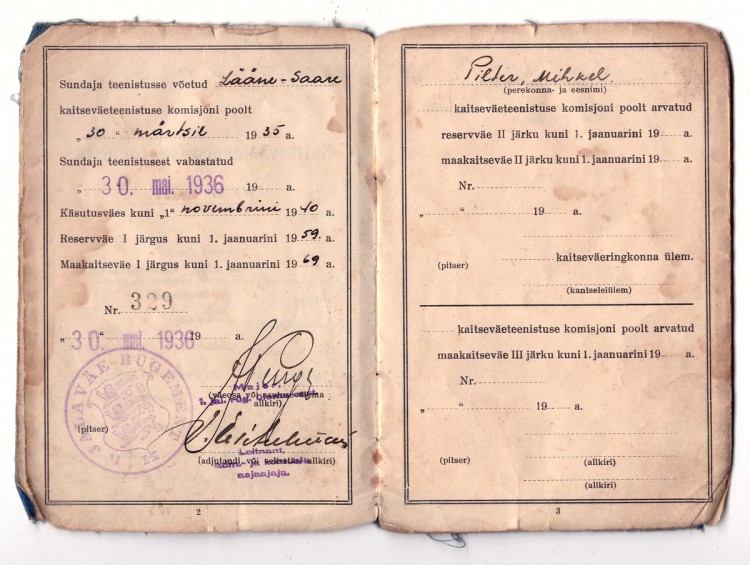 Sundaja teenistusse võetud Lääne-Saare
kaitseväeteenistuse komisjoni poolt
„ 30 “ märtsil 1935 a.
Sundaja teenistusest vabastatud
„ 30. mai. 1936 19 a.
Käsutusväes kuni „1“ novembrini 1940 a.
Reservväe I järgus kuni 1. jaanuarini 1959. a.
Maakaitseväe I järgus kuni 1. jaanuarini 1969 a.
Nr. 329
„ 30. mai. 1936 19 a.
JALAVÄE-RÜGEMENT
Major
(väeosa või asutuse ülema
1. jal. rüg.
allkiri)
(pitser)
Leitnant,
(adjutandi või sekretäri allkiri)
asjaajaja.
2
Pilter, Mihkel
(perekonna- ja eesnimi)
kaitseväeteenistuse komisjoni poolt arvatud
reservväe II järku kuni 1. jaanuarini 19 a.
maakaitseväe II järku kuni 1. jaanuarini 19 a.
Nr.
„ “ 19 a.
kaitseväeringkonna ülem.
(pitser)
(kantseleiülem)
kaitseväeteenistuse komisjoni poolt arvatud
maakaitseväe III järku kuni 1. jaanuarini 19 a.
Nr.
„ “ 19 a.
(pitser) (allkiri)
(allkiri)
3